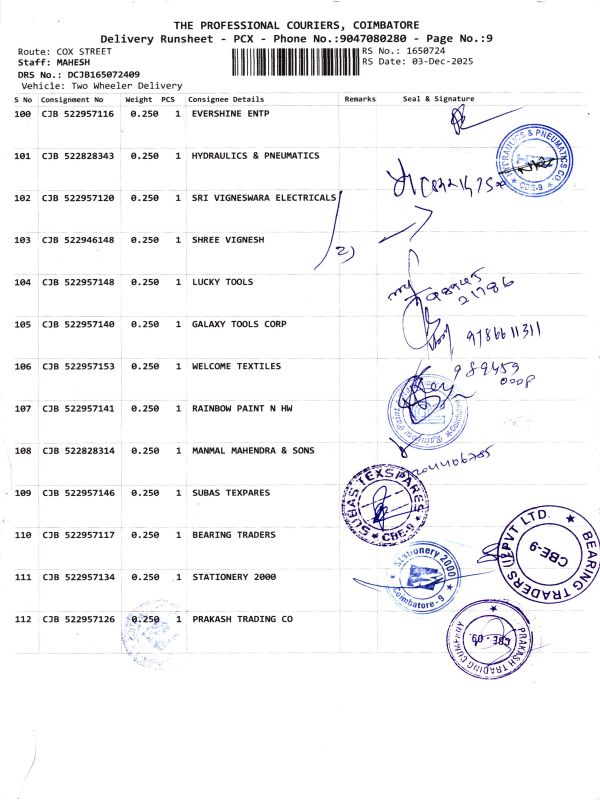 THE PROFESSIONAL COURIERS, COIMBATORE
Delivery Runsheet - PCX - Phone No.:9047080280 - Page No.:9
Route: COX STREET
RS No.: 1650724
Staff: MAHESH
RS Date: 03-Dec-2025
DRS No.: DCJB165072409
Vehicle: Two Wheeler Delivery
S No Consignment No Weight PCS Consignee Details Remarks Seal & Signature
100 CJB 522957116 0.250 1 EVERSHINE ENTP
101 CJB 522828343 0.250 1 HYDRAULICS & PNEUMATICS
HYDRAULICS & PNEUMATICS CO. CBE-9
102 CJB 522957120 0.250 1 SRI VIGNESWARA ELECTRICALS
103 CJB 522946148 0.250 1 SHREE VIGNESH
2)
104 CJB 522957148 0.250 1 LUCKY TOOLS
21786
105 CJB 522957140 0.250 1 GALAXY TOOLS CORP
9786611311
106 CJB 522957153 0.250 1 WELCOME TEXTILES
989459
107 CJB 522957141 0.250 1 RAINBOW PAINT N HW
108 CJB 522828314 0.250 1 MANMAL MAHENDRA & SONS
109 CJB 522957146 0.250 1 SUBAS TEXPARES
SUBAS TEXSPARES CBE-9
110 CJB 522957117 0.250 1 BEARING TRADERS
BEARING TRADERS (I) PVT LTD. CBE-9
111 CJB 522957134 0.250 1 STATIONERY 2000
Stationery 2000 Coimbatore - 9
112 CJB 522957126 0.250 1 PRAKASH TRADING CO
PRAKASH TRADING COMPANY CBE - 09